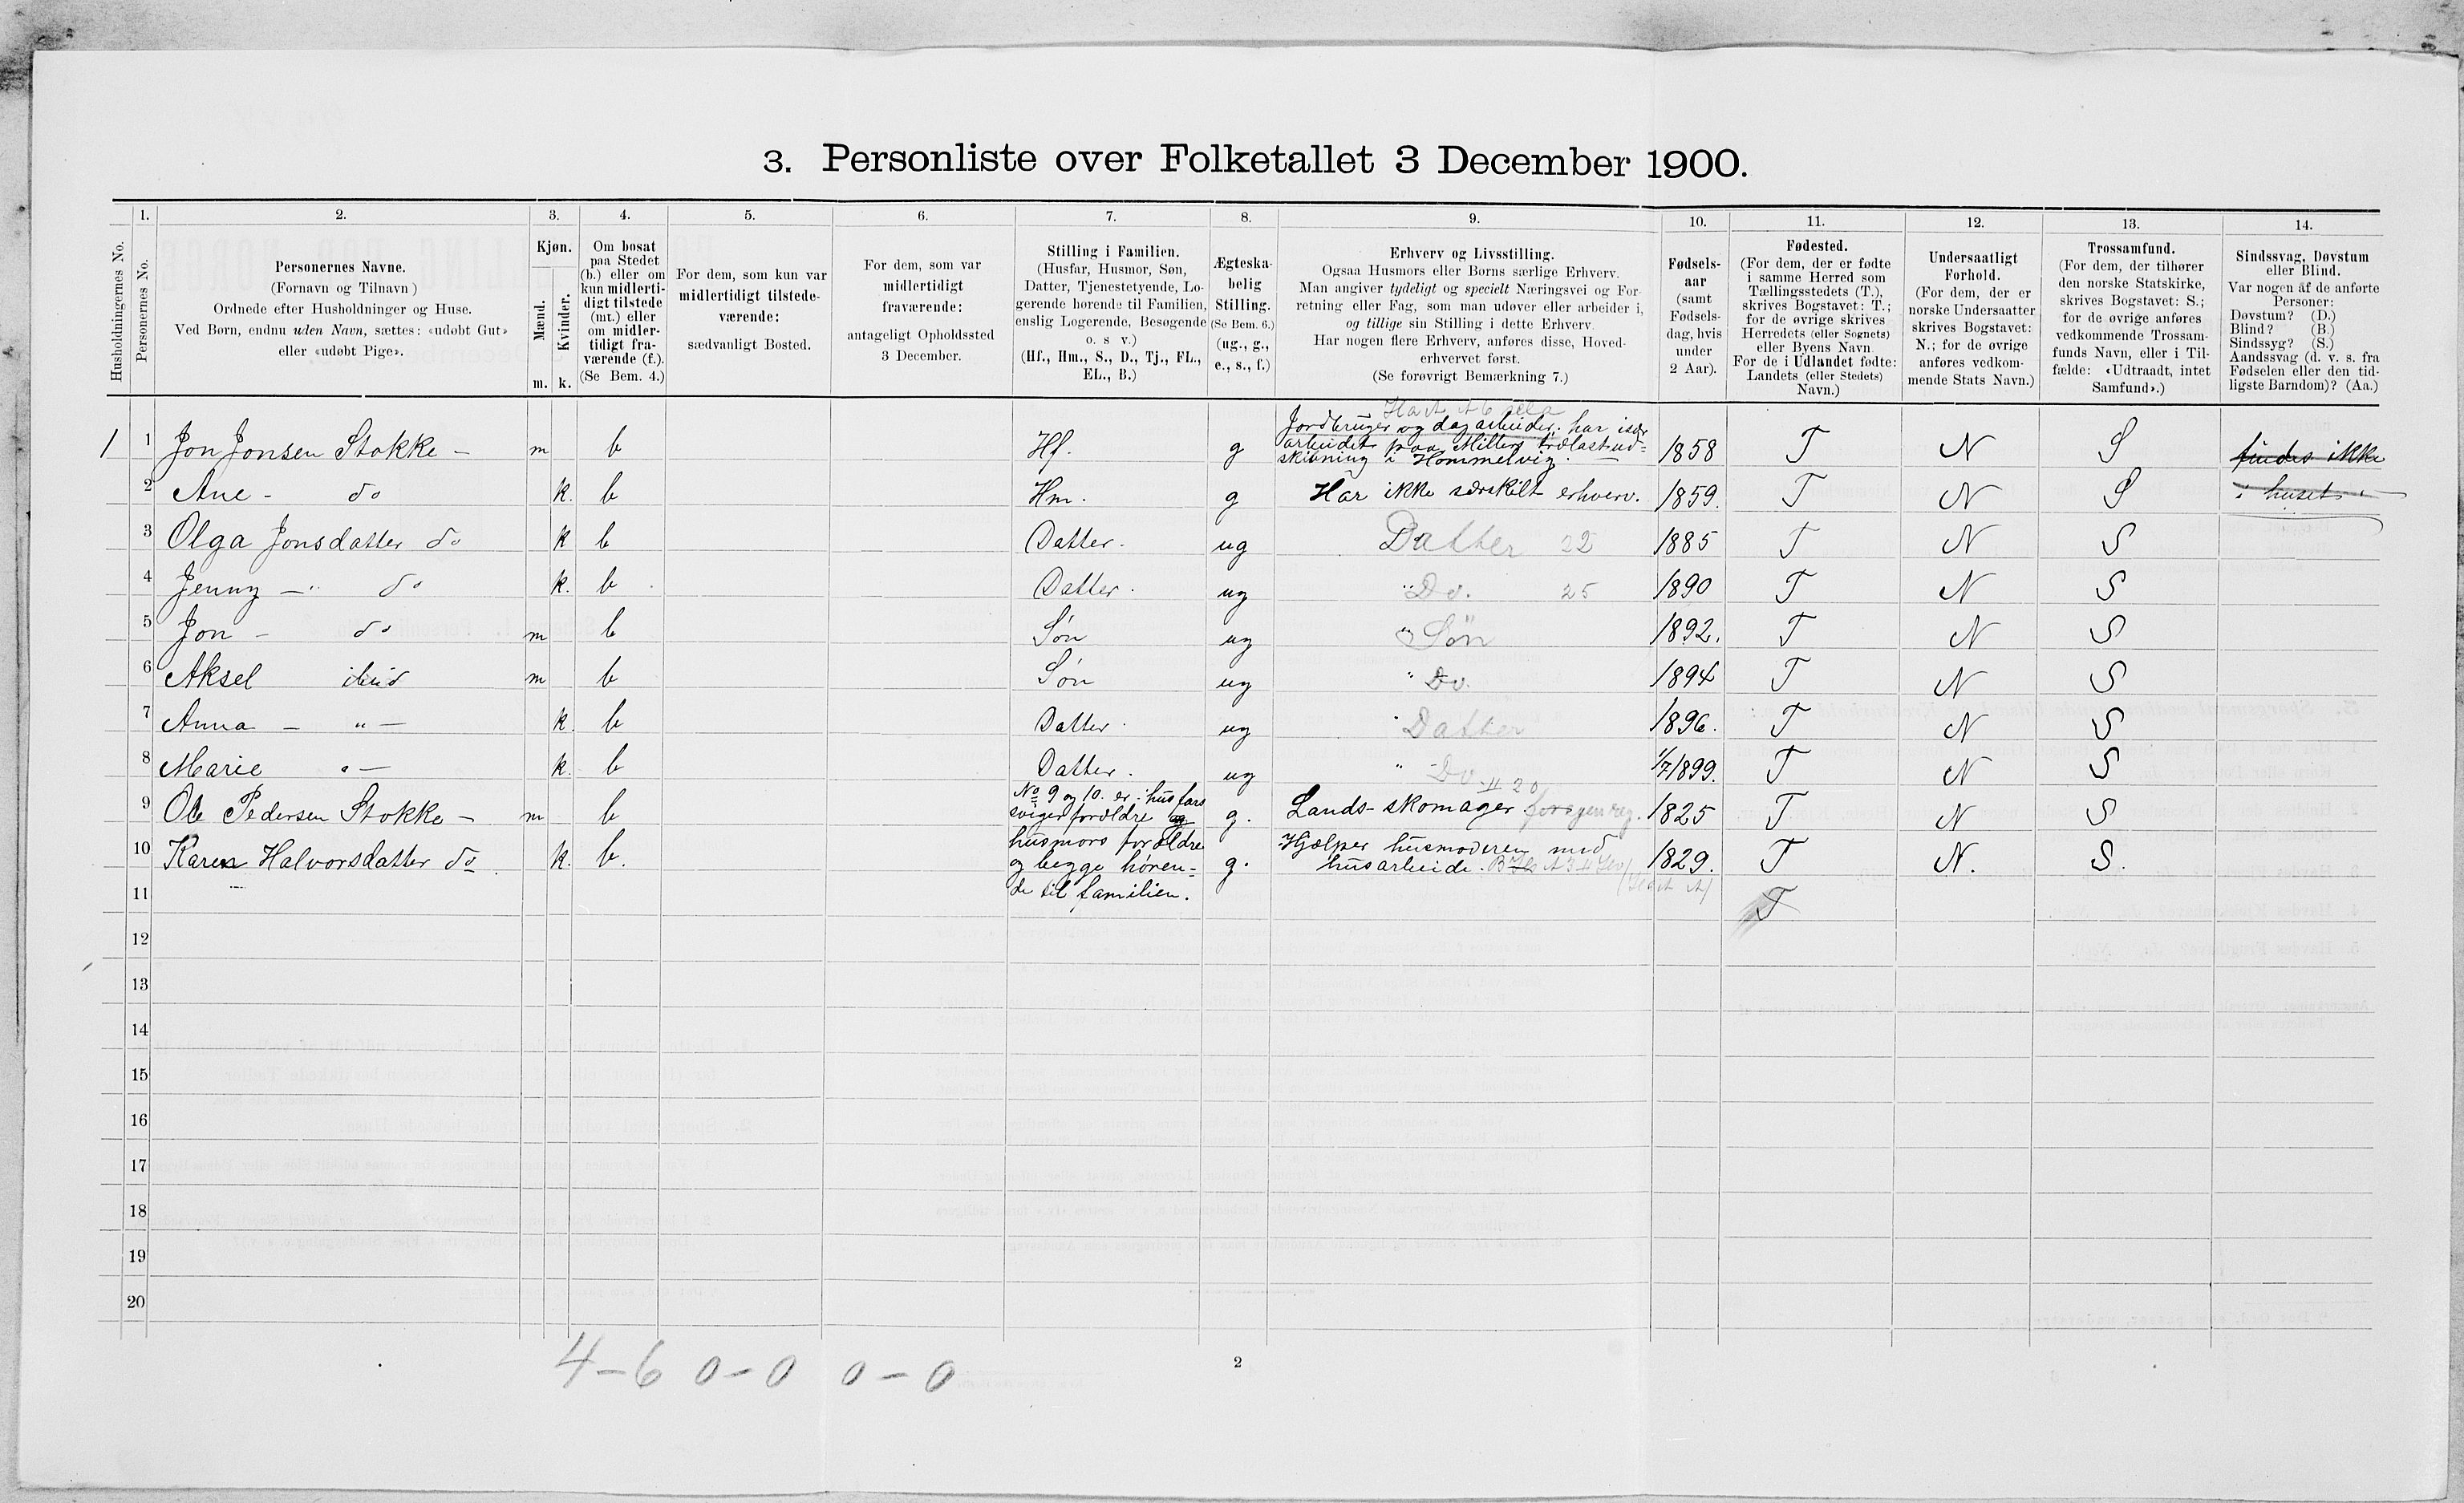 3. Personliste over Folketallet 3 December 1900.
1. 2. 3. 4. 5. 6. 7. 8. 9. 10. 11. 12. 13. 14.
Husholdningernes No.
Personernes No.
Personernes Navne.
(Fornavn og Tilnavn)
Ordnede efter Husholdninger og Huse.
Ved Børn, endnu uden Navn, sættes: «udøbt Gut»
eller «udøbt Pige».
Kjøn.
Mænd.
Kvinder.
m. k.
Om bosat
paa Stedet
(b.) eller om
kun midlerti-
digt tilstede
(mt.) eller
om midler-
tidigt fra-
værende (f.).
(Se Bem. 4.)
For dem, som kun var
midlertidigt tilstede-
værende:
sædvanligt Bosted.
For dem, som var
midlertidigt
fraværende:
antageligt Opholdssted
3 December.
Stilling i Familien.
(Husfar, Husmor, Søn,
Datter, Tjenestetyende, Lo-
gerende hørende til Familien,
enslig Logerende, Besøgende
o. s v.)
(Hf., Hm., S., D., Tj., FL.,
EL., B.)
Ægteska-
belig
Stilling.
(Se Bem. 6.)
(ug., g.,
e., s., f.)
Erhverv og Livsstilling.
Ogsaa Husmors eller Børns særlige Erhverv.
Man angiver tydeligt og specielt Næringsvei og For-
retning eller Fag, som man udøver eller arbeider i,
og tillige sin Stilling i dette Erhverv.
Har nogen flere Erhverv, anføres disse, Hoved-
erhvervet først.
(Se forøvrigt Bemærkning 7.)
Fødsels-
aar
(samt
Fødsels-
dag, hvis
under
2 Aar).
Fødested.
(For dem, der er fødte
i samme Herred som
Tællingsstedets (T.),
skrives Bogstavet: T.;
for de øvrige skrives
Herredets (eller Sognets)
eller Byens Navn
For de i Udlandet fødte:
Landets (eller Stedets)
Navn.)
Undersaatligt
Forhold.
(For dem, der er
norske Undersaatter
skrives Bogstavet:
N.; for de øvrige
anføres vedkom-
mende Stats Navn.)
Trossamfund.
(For dem, der tilhører
den norske Statskirke,
skrives Bogstavet: S.;
for de øvrige anføres
vedkommende Trossam-
funds Navn, eller i Til-
fælde: «Udtraadt, intet
Samfund».)
Sindssvag, Døvstum
eller Blind.
Var nogen af de anførte
Personer:
Døvstum? (D.)
Blind? (B.)
Sindssyg? (S.)
Aandssvag (d. v. s. fra
Fødselen eller den tid-
ligste Barndom)? (Aa.)
Jordbruger og dagarbeider; har især
arbeidet paa Millers trælastud-
skibning i Hommelvig.
1 1 Jon Jonsen Stokke - m b Hf. g 1858 T N S findes ikke
2 Ane - do k. b Hm. g Har ikke særskilt erhverv. 1859. T N S i huset
3 Olga Jonsdatter do k b Datter. ug Datter 22 1885 T N S
4 Jenny - " do k. b Datter. ug " Do. 25 1890 T N S
5 Jon - do m b Søn ug " Søn 1892. T N S
6 Aksel ibid m b Søn ug " Do. 1894 T N S
7 Anna - " - k. b Datter. ug " Datter 1896. T N S
8 Marie " - k. b Datter. ug " Do 1/7 1899. T N S
No 9 og 10. er husfars
9 Ole Pedersen Stokke - m b svigerforældre og g. Lands-skomager 1825 T N S
husmors forældre
10 Karen Halvorsdatter do. k. b. og begge høren- g. Hjælper husmoderen med
husarbeide. 1829. T N. S.
11 de til familien. T
12
13
14
15
16
17
18
19
20
4-6 0-0 0-0
2